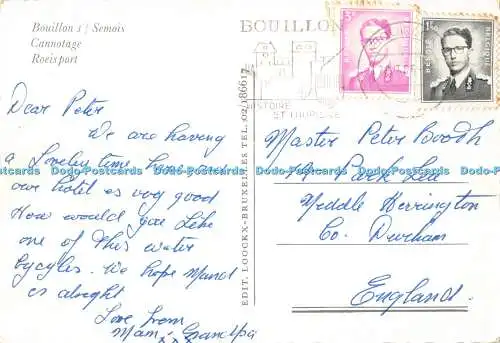 Bouillon s/ Semois
Cannotage
Roeisport
Dear Peter
We are having
a Lovely time here
our hotel is very good
How would you Like
one of this water
bycycles. We hope
is alright
Love from
Mam & Grandpa
xxx
EDIT. LOOCKX-BRUXELLES TEL. 02/186617
BOUILLON
HISTOIRE
ET TOURISME
3F
BELGIE BELGIQUE
1F50
BELGIE BELGIQUE
Master Peter Booth
Park Lea
Middle Herrington
Co. Durham
England.
Dodo-Postcards Dodo-Postcards Dodo-Postcards Dodo-Postcards Dodo-Postcards